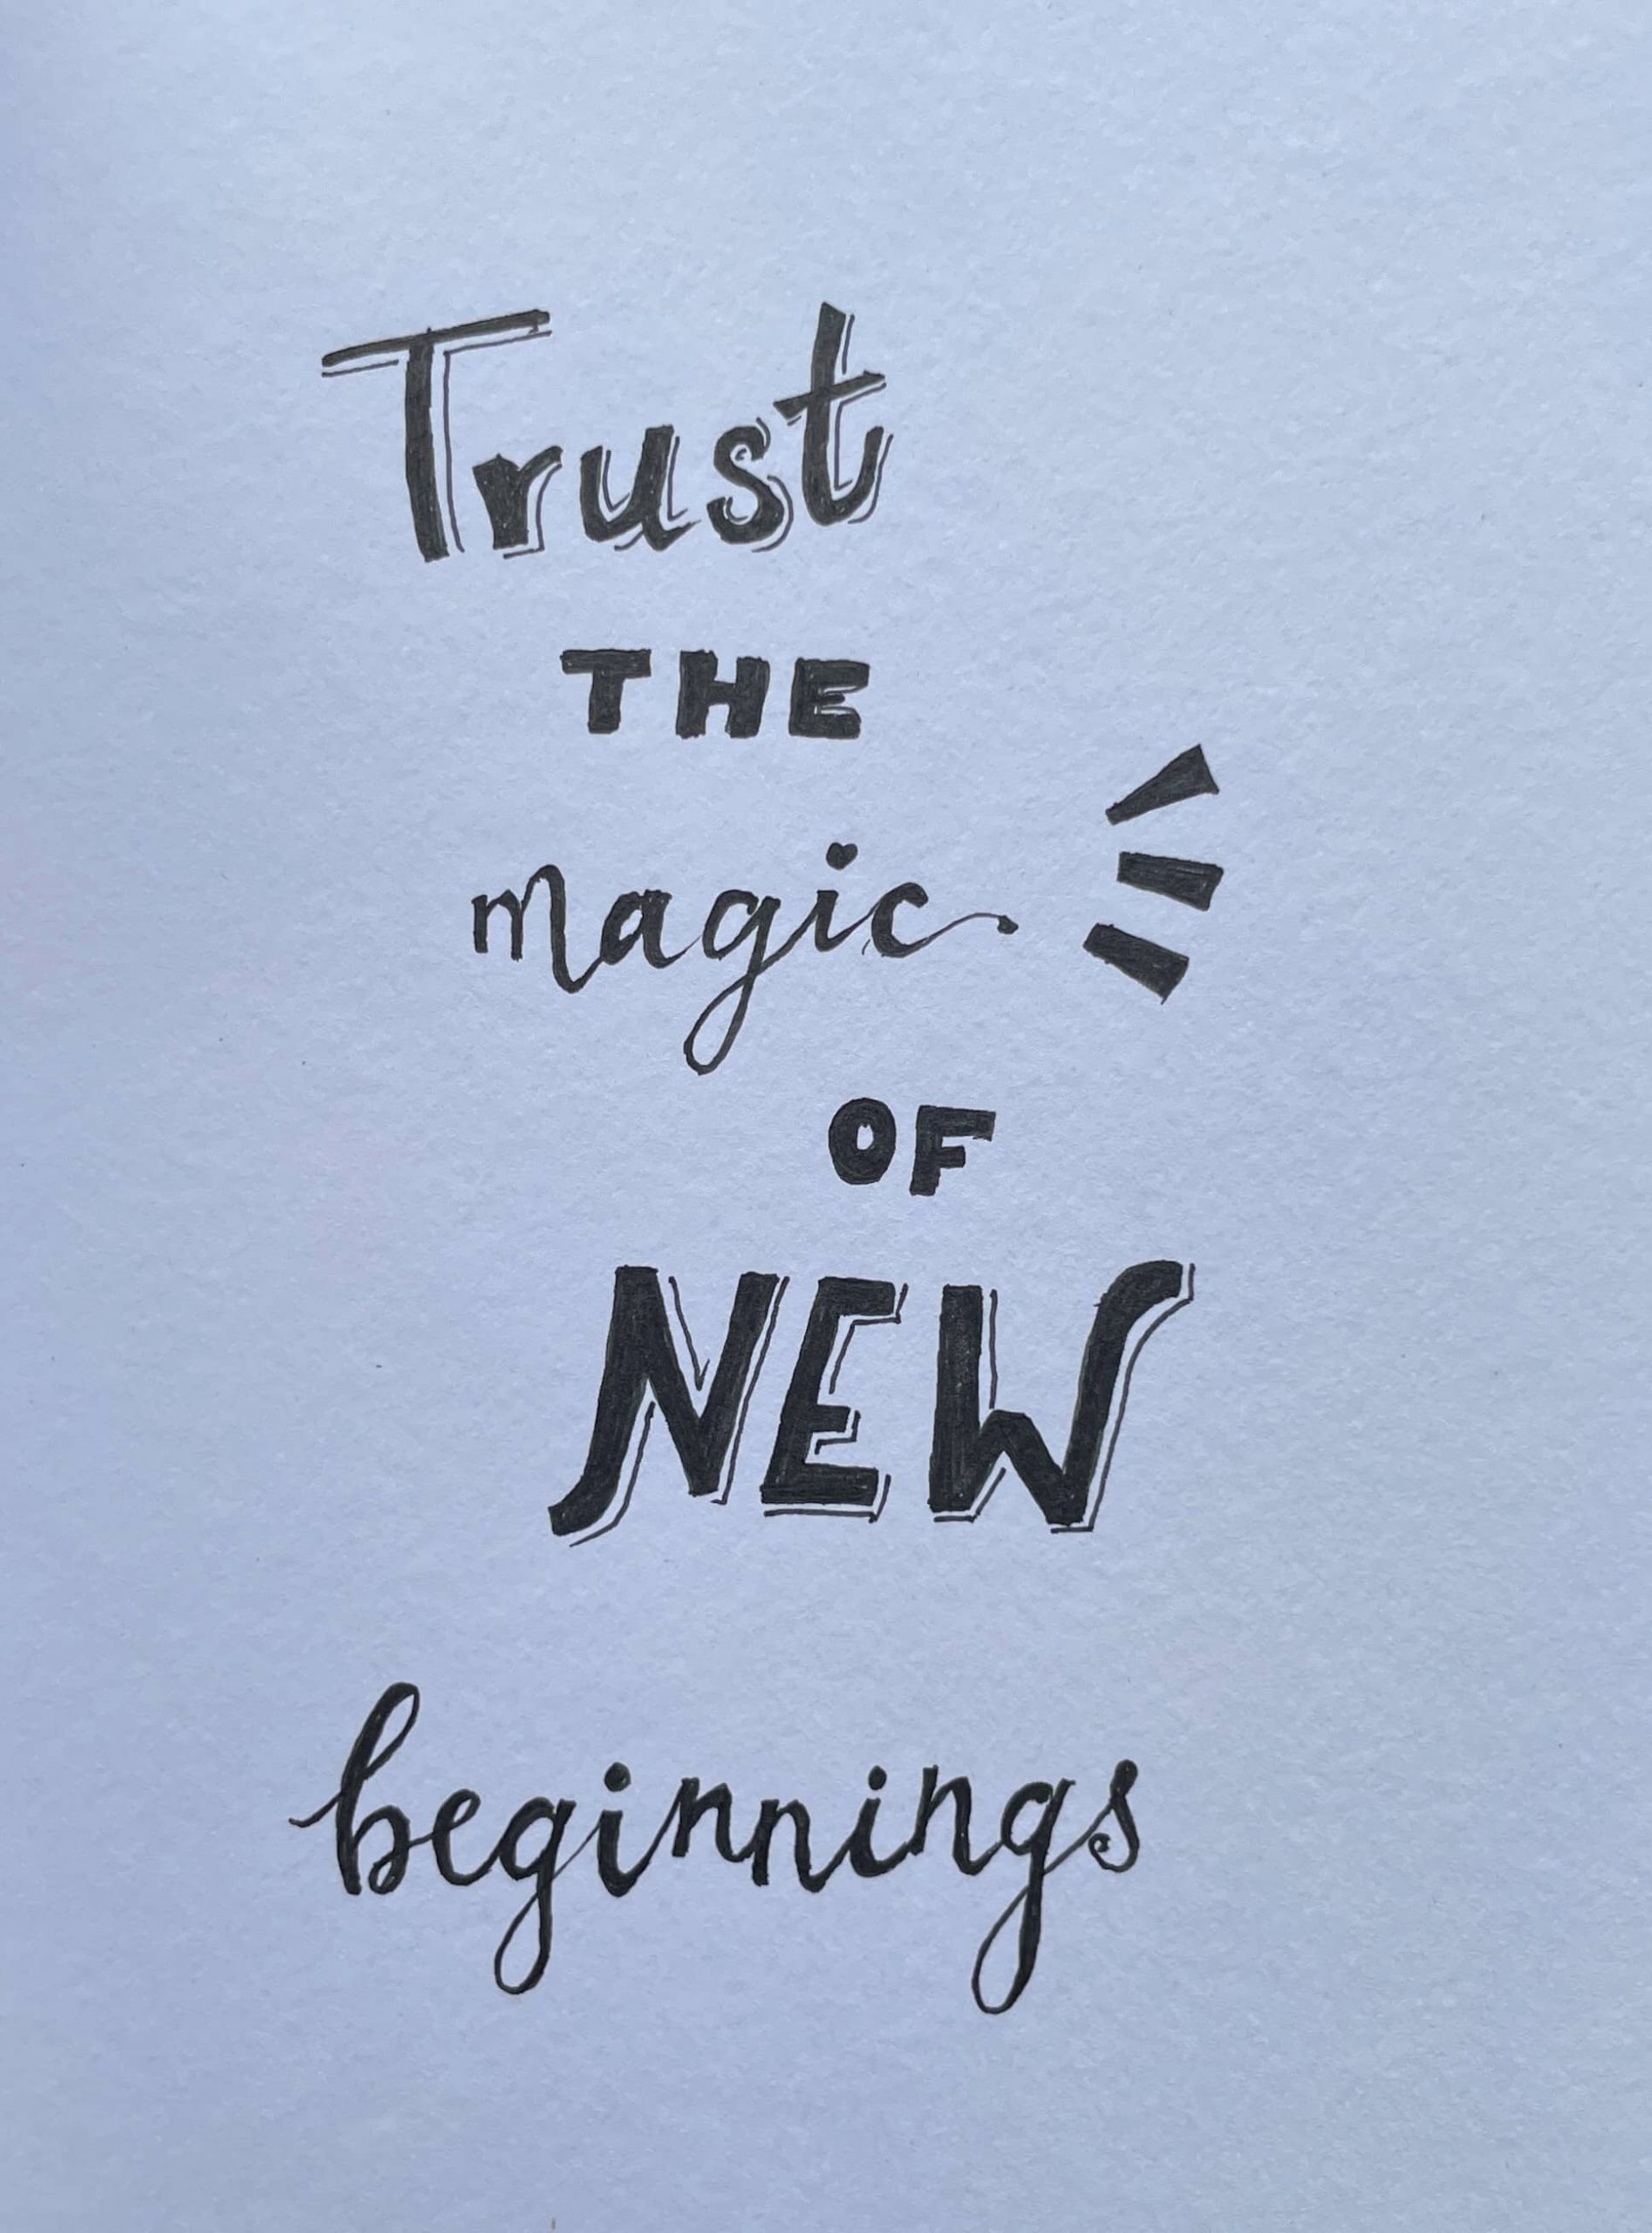 Trust
THE
magic
OF
NEW
beginnings